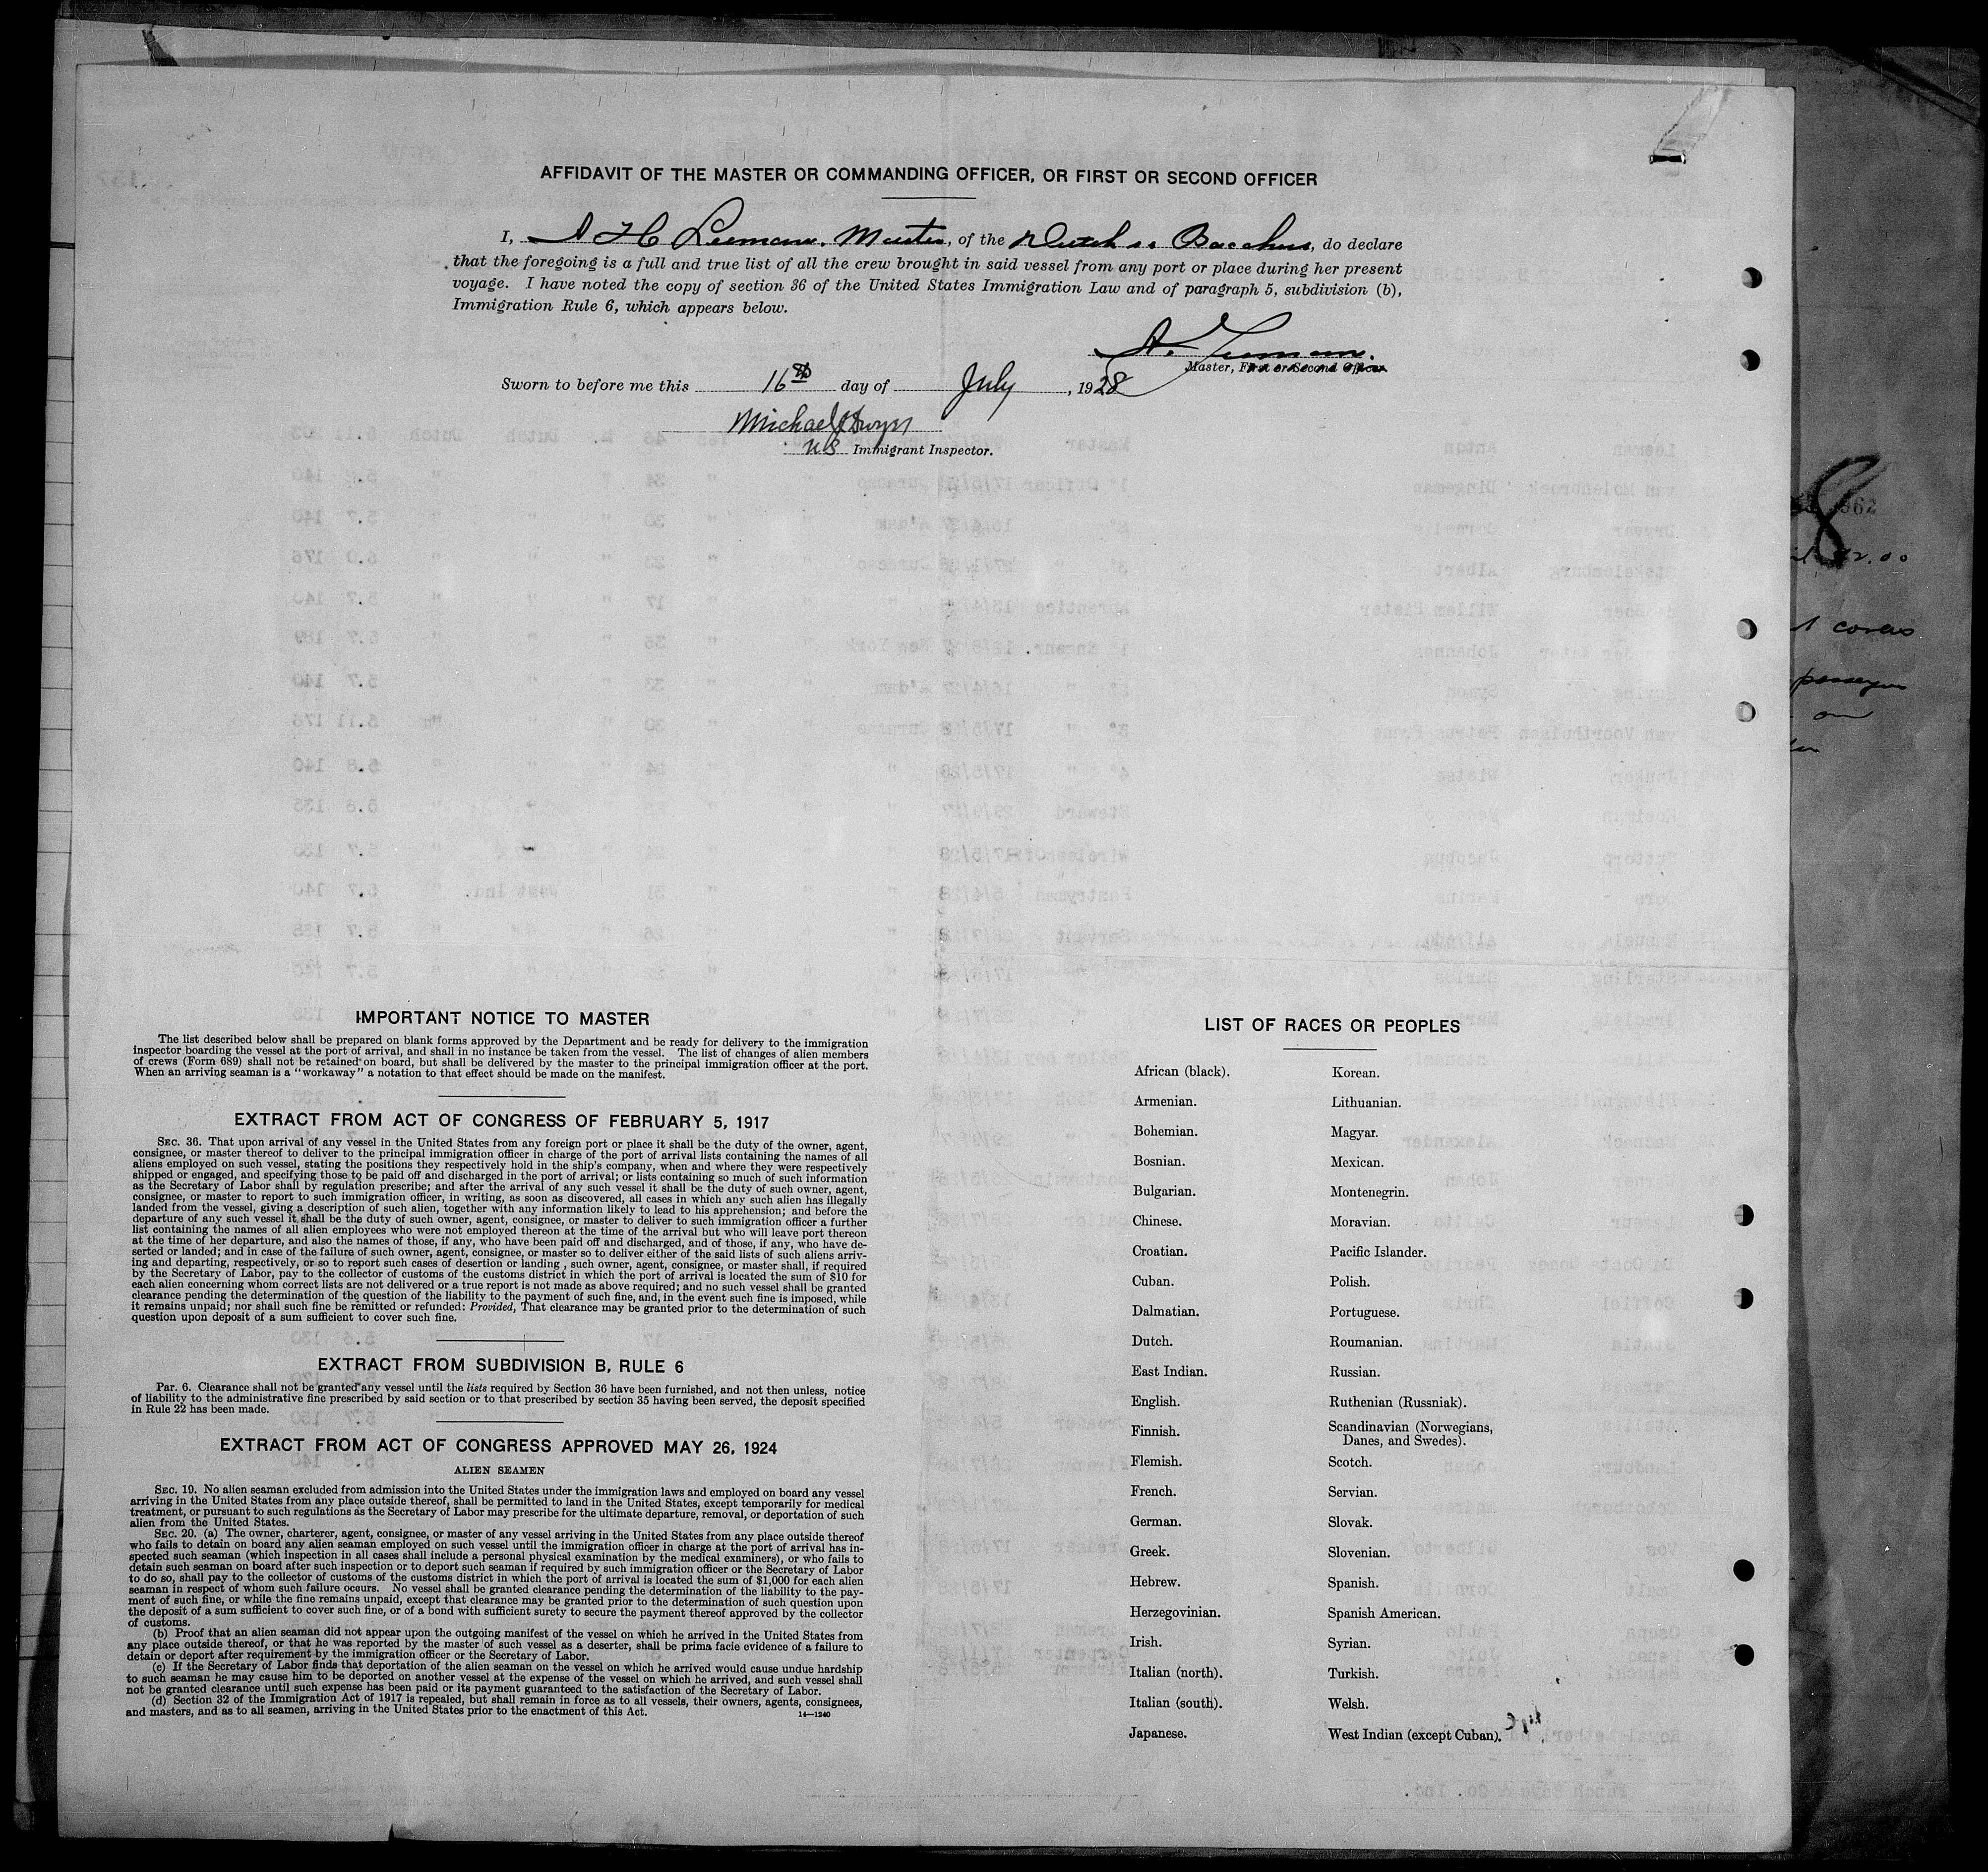 AFFIDAVIT OF THE MASTER OR COMMANDING OFFICER, OR FIRST OR SECOND OFFICER
I, A H Leemann. Master, of the Dutch ss Bacchus, do declare
that the foregoing is a full and true list of all the crew brought in said vessel from any port or place during her present
voyage. I have noted the copy of section 36 of the United States Immigration Law and of paragraph 5, subdivision (b),
Immigration Rule 6, which appears below.
A. Leemann.
Master, First or Second Officer
Sworn to before me this 16th day of July, 1928
Michael J Dwyer
US Immigrant Inspector.
IMPORTANT NOTICE TO MASTER
The list described below shall be prepared on blank forms approved by the Department and be ready for delivery to the immigration
inspector boarding the vessel at the port of arrival, and shall in no instance be taken from the vessel. The list of changes of alien members
of crews (Form 689) shall not be retained on board, but shall be delivered by the master to the principal immigration officer at the port.
When an arriving seaman is a "workaway" a notation to that effect should be made on the manifest.
EXTRACT FROM ACT OF CONGRESS OF FEBRUARY 5, 1917
SEC. 36. That upon arrival of any vessel in the United States from any foreign port or place it shall be the duty of the owner, agent,
consignee, or master thereof to deliver to the principal immigration officer in charge of the port of arrival lists containing the names of all
aliens employed on such vessel, stating the positions they respectively hold in the ship's company, when and where they were respectively
shipped or engaged, and specifying those to be paid off and discharged in the port of arrival; or lists containing so much of such information
as the Secretary of Labor shall by regulation prescribe; and after the arrival of any such vessel it shall be the duty of such owner, agent,
consignee, or master to report to such immigration officer, in writing, as soon as discovered, all cases in which any such alien has illegally
landed from the vessel, giving a description of such alien, together with any information likely to lead to his apprehension; and before the
departure of any such vessel it shall be the duty of such owner, agent, consignee, or master to deliver to such immigration officer a further
list containing the names of all alien employees who were not employed thereon at the time of the arrival but who will leave port thereon
at the time of her departure, and also the names of those, if any, who have been paid off and discharged, and of those, if any, who have de-
serted or landed; and in case of the failure of such owner, agent, consignee, or master so to deliver either of the said lists of such aliens arriv-
ing and departing, respectively, or so to report such cases of desertion or landing , such owner, agent, consignee, or master shall, if required
by the Secretary of Labor, pay to the collector of customs of the customs district in which the port of arrival is located the sum of $10 for
each alien concerning whom correct lists are not delivered or a true report is not made as above required; and no such vessel shall be granted
clearance pending the determination of the question of the liability to the payment of such fine, and, in the event such fine is imposed, while
it remains unpaid; nor shall such fine be remitted or refunded: Provided, That clearance may be granted prior to the determination of such
question upon deposit of a sum sufficient to cover such fine.
EXTRACT FROM SUBDIVISION B, RULE 6
Par. 6. Clearance shall not be granted any vessel until the lists required by Section 36 have been furnished, and not then unless, notice
of liability to the administrative fine prescribed by said section or to that prescribed by section 35 having been served, the deposit specified
in Rule 22 has been made.
EXTRACT FROM ACT OF CONGRESS APPROVED MAY 26, 1924
ALIEN SEAMEN
SEC. 19. No alien seaman excluded from admission into the United States under the immigration laws and employed on board any vessel
arriving in the United States from any place outside thereof, shall be permitted to land in the United States, except temporarily for medical
treatment, or pursuant to such regulations as the Secretary of Labor may prescribe for the ultimate departure, removal, or deportation of such
alien from the United States.
SEC. 20. (a) The owner, charterer, agent, consignee, or master of any vessel arriving in the United States from any place outside thereof
who fails to detain on board any alien seaman employed on such vessel until the immigration officer in charge at the port of arrival has in-
spected such seaman (which inspection in all cases shall include a personal physical examination by the medical examiners), or who fails to
detain such seaman on board after such inspection or to deport such seaman if required by such immigration officer or the Secretary of Labor
to do so, shall pay to the collector of customs of the customs district in which the port of arrival is located the sum of $1,000 for each alien
seaman in respect of whom such failure occurs. No vessel shall be granted clearance pending the determination of the liability to the pay-
ment of such fine, or while the fine remains unpaid, except that clearance may be granted prior to the determination of such question upon
the deposit of a sum sufficient to cover such fine, or of a bond with sufficient surety to secure the payment thereof approved by the collector
of customs.
(b) Proof that an alien seaman did not appear upon the outgoing manifest of the vessel on which he arrived in the United States from
any place outside thereof, or that he was reported by the master of such vessel as a deserter, shall be prima facie evidence of a failure to
detain or deport after requirement by the immigration officer or the Secretary of Labor.
(c) If the Secretary of Labor finds that deportation of the alien seaman on the vessel on which he arrived would cause undue hardship
to such seaman he may cause him to be deported on another vessel at the expense of the vessel on which he arrived, and such vessel shall
not be granted clearance until such expense has been paid or its payment guaranteed to the satisfaction of the Secretary of Labor.
(d) Section 32 of the Immigration Act of 1917 is repealed, but shall remain in force as to all vessels, their owners, agents, consignees,
and masters, and as to all seamen, arriving in the United States prior to the enactment of this Act.
14—1240
LIST OF RACES OR PEOPLES
African (black).
Armenian.
Bohemian.
Bosnian.
Bulgarian.
Chinese.
Croatian.
Cuban.
Dalmatian.
Dutch.
East Indian.
English.
Finnish.
Flemish.
French.
German.
Greek.
Hebrew.
Herzegovinian.
Irish.
Italian (north).
Italian (south).
Japanese.
Korean.
Lithuanian.
Magyar.
Mexican.
Montenegrin.
Moravian.
Pacific Islander.
Polish.
Portuguese.
Roumanian.
Russian.
Ruthenian (Russniak).
Scandinavian (Norwegians,
Danes, and Swedes).
Scotch.
Servian.
Slovak.
Slovenian.
Spanish.
Spanish American.
Syrian.
Turkish.
Welsh.
West Indian (except Cuban).
8
962
covers
passenger
on